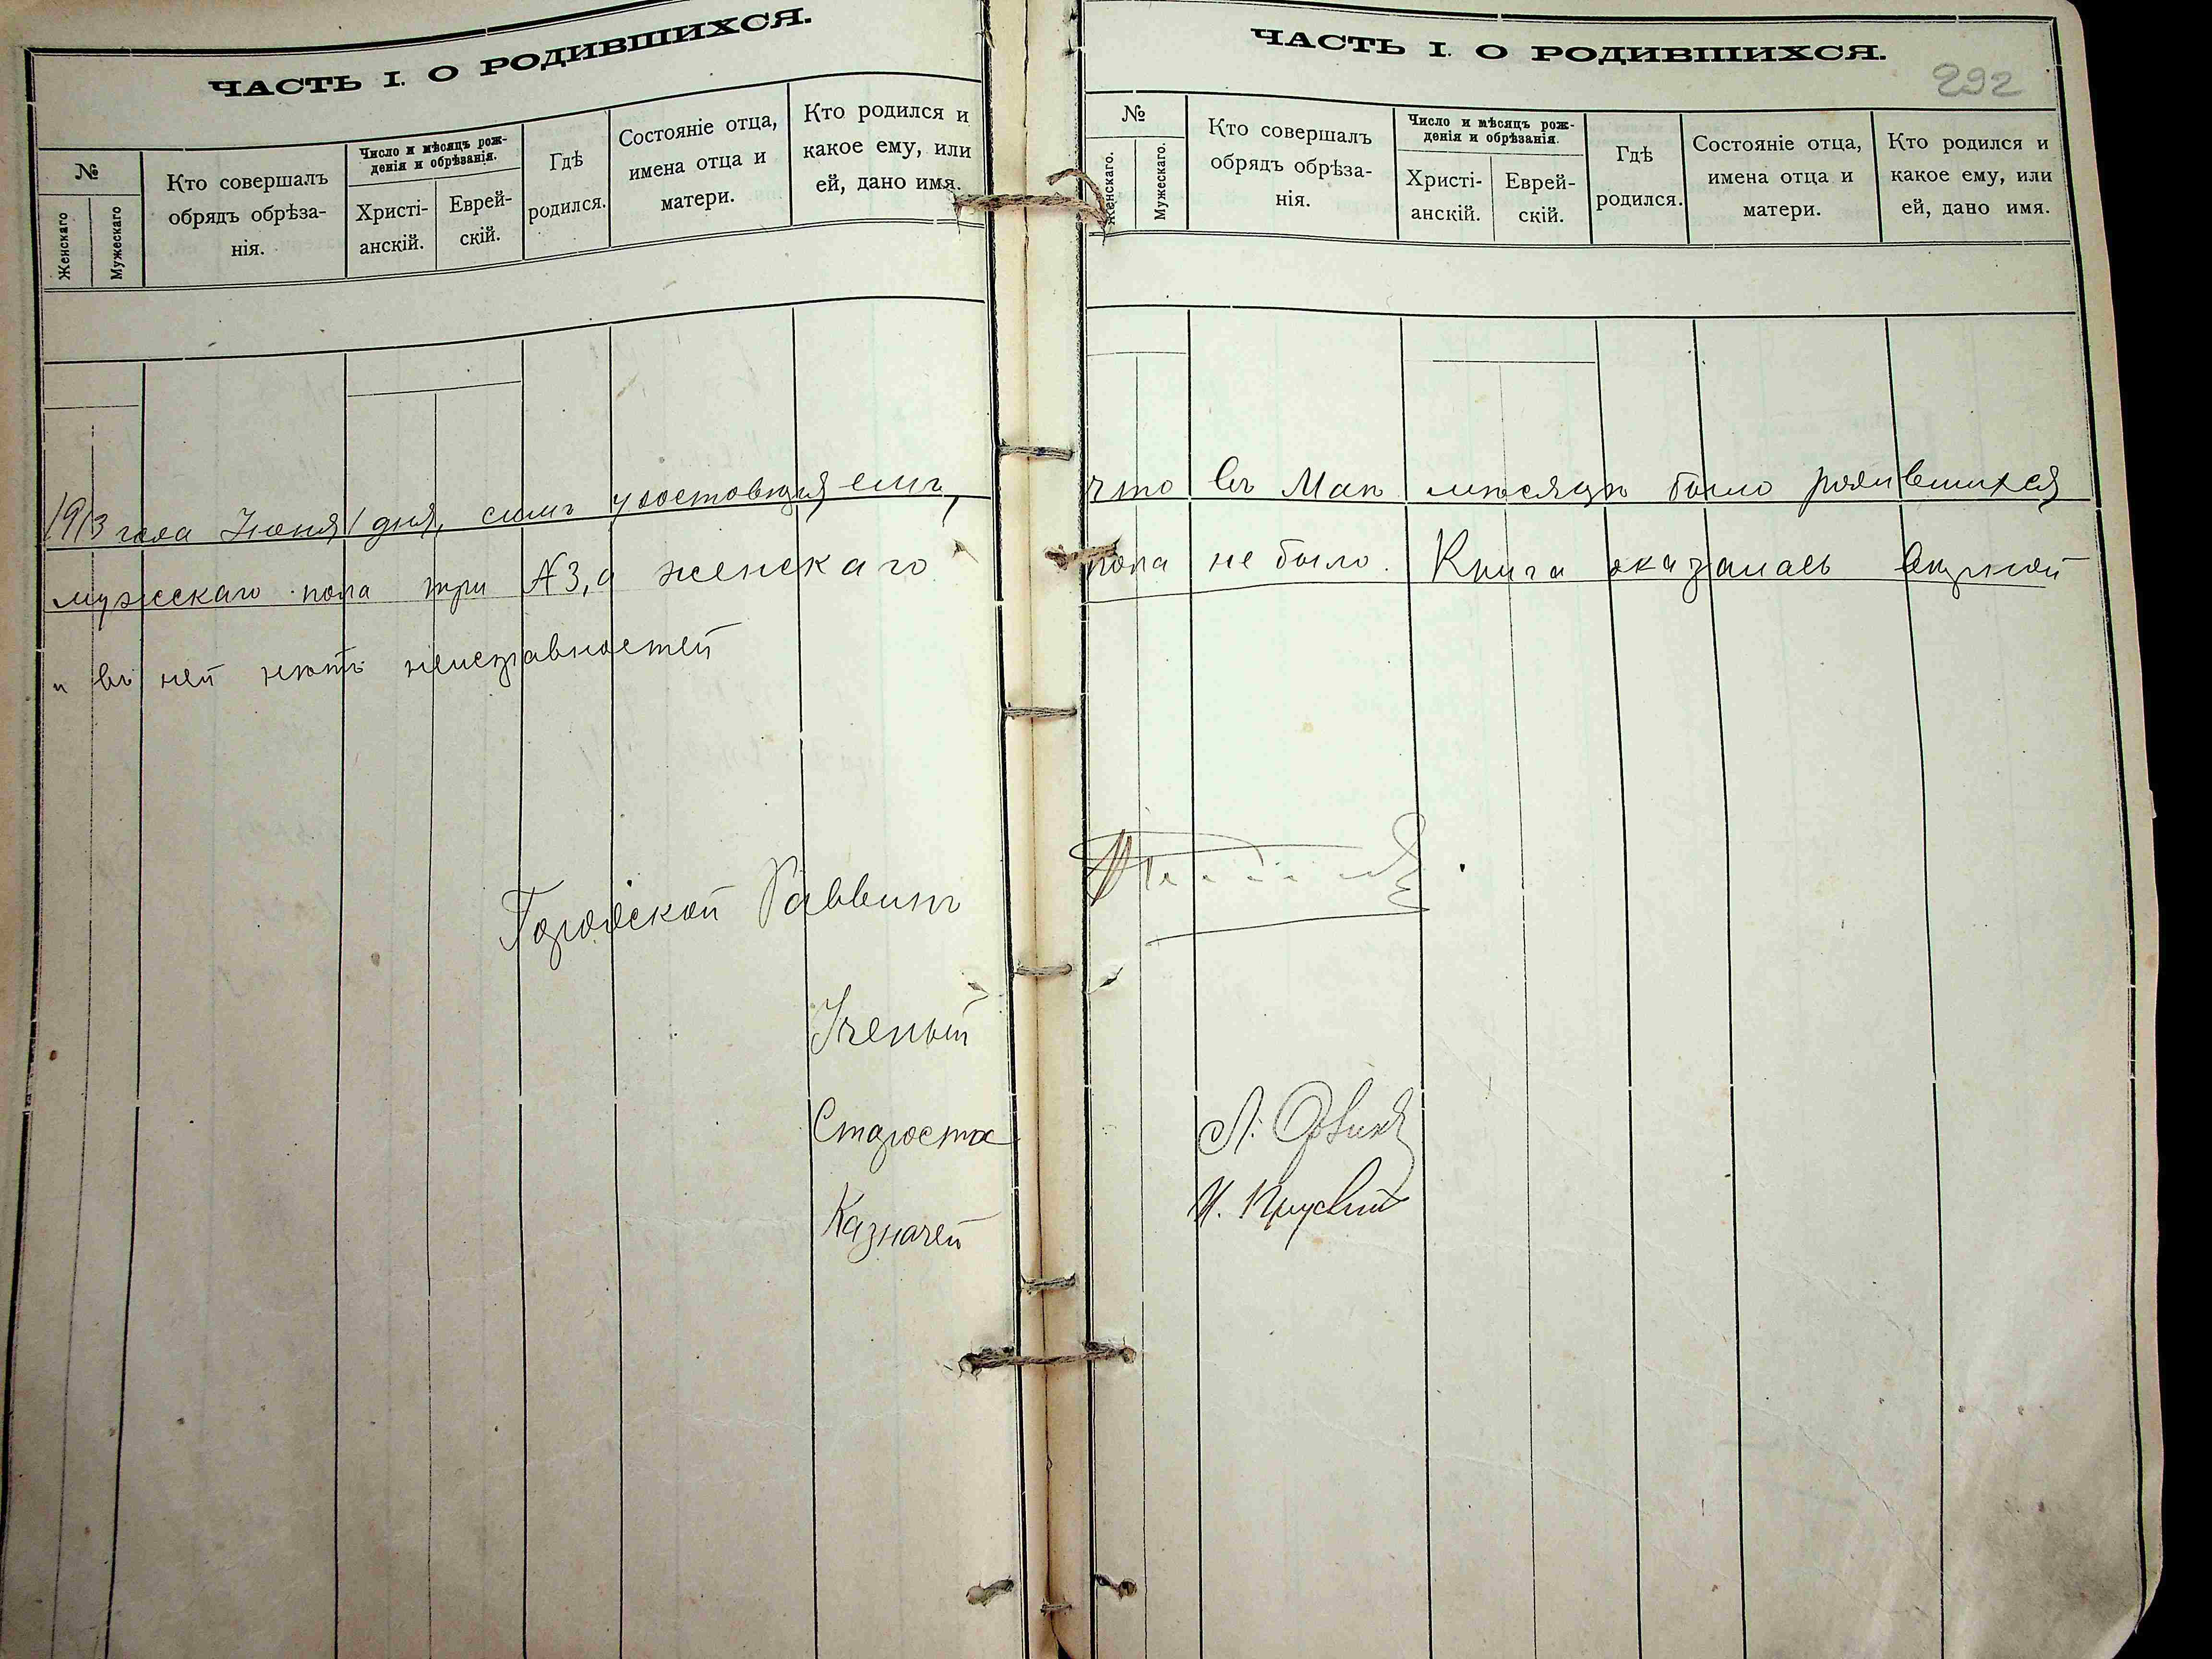 ЧАСТЬ I. О РОДИВШИХСЯ.
№
Женскаго
Мужескаго
Кто совершалъ
обрядъ обрѣза-
нія.
Число и мѣсяцъ рож-
денія и обрѣзанія.
Христі-
анскій.
Еврей-
скій.
Гдѣ
родился.
Состояніе отца,
имена отца и
матери.
Кто родился и
какое ему, или
ей, дано имя.
ЧАСТЬ I. О РОДИВШИХСЯ.
292
№
Женскаго.
Мужескаго.
Кто совершалъ
обрядъ обрѣза-
нія.
Число и мѣсяцъ рож-
денія и обрѣзанія.
Христі-
анскій.
Еврей-
скій.
Гдѣ
родился.
Состояніе отца,
имена отца и
матери.
Кто родился и
какое ему, или
ей, дано имя.
1913 года Іюня 1 дня, симъ удостовѣряемъ, что въ Маѣ мѣсяцѣ было родившихся
мужескаго пола три № 3, а женскаго пола не было. Книга оказалась вѣрной
и въ ней нѣтъ неисправностей
Городской Раввинъ
Ученый
Староста Л.
Казначей